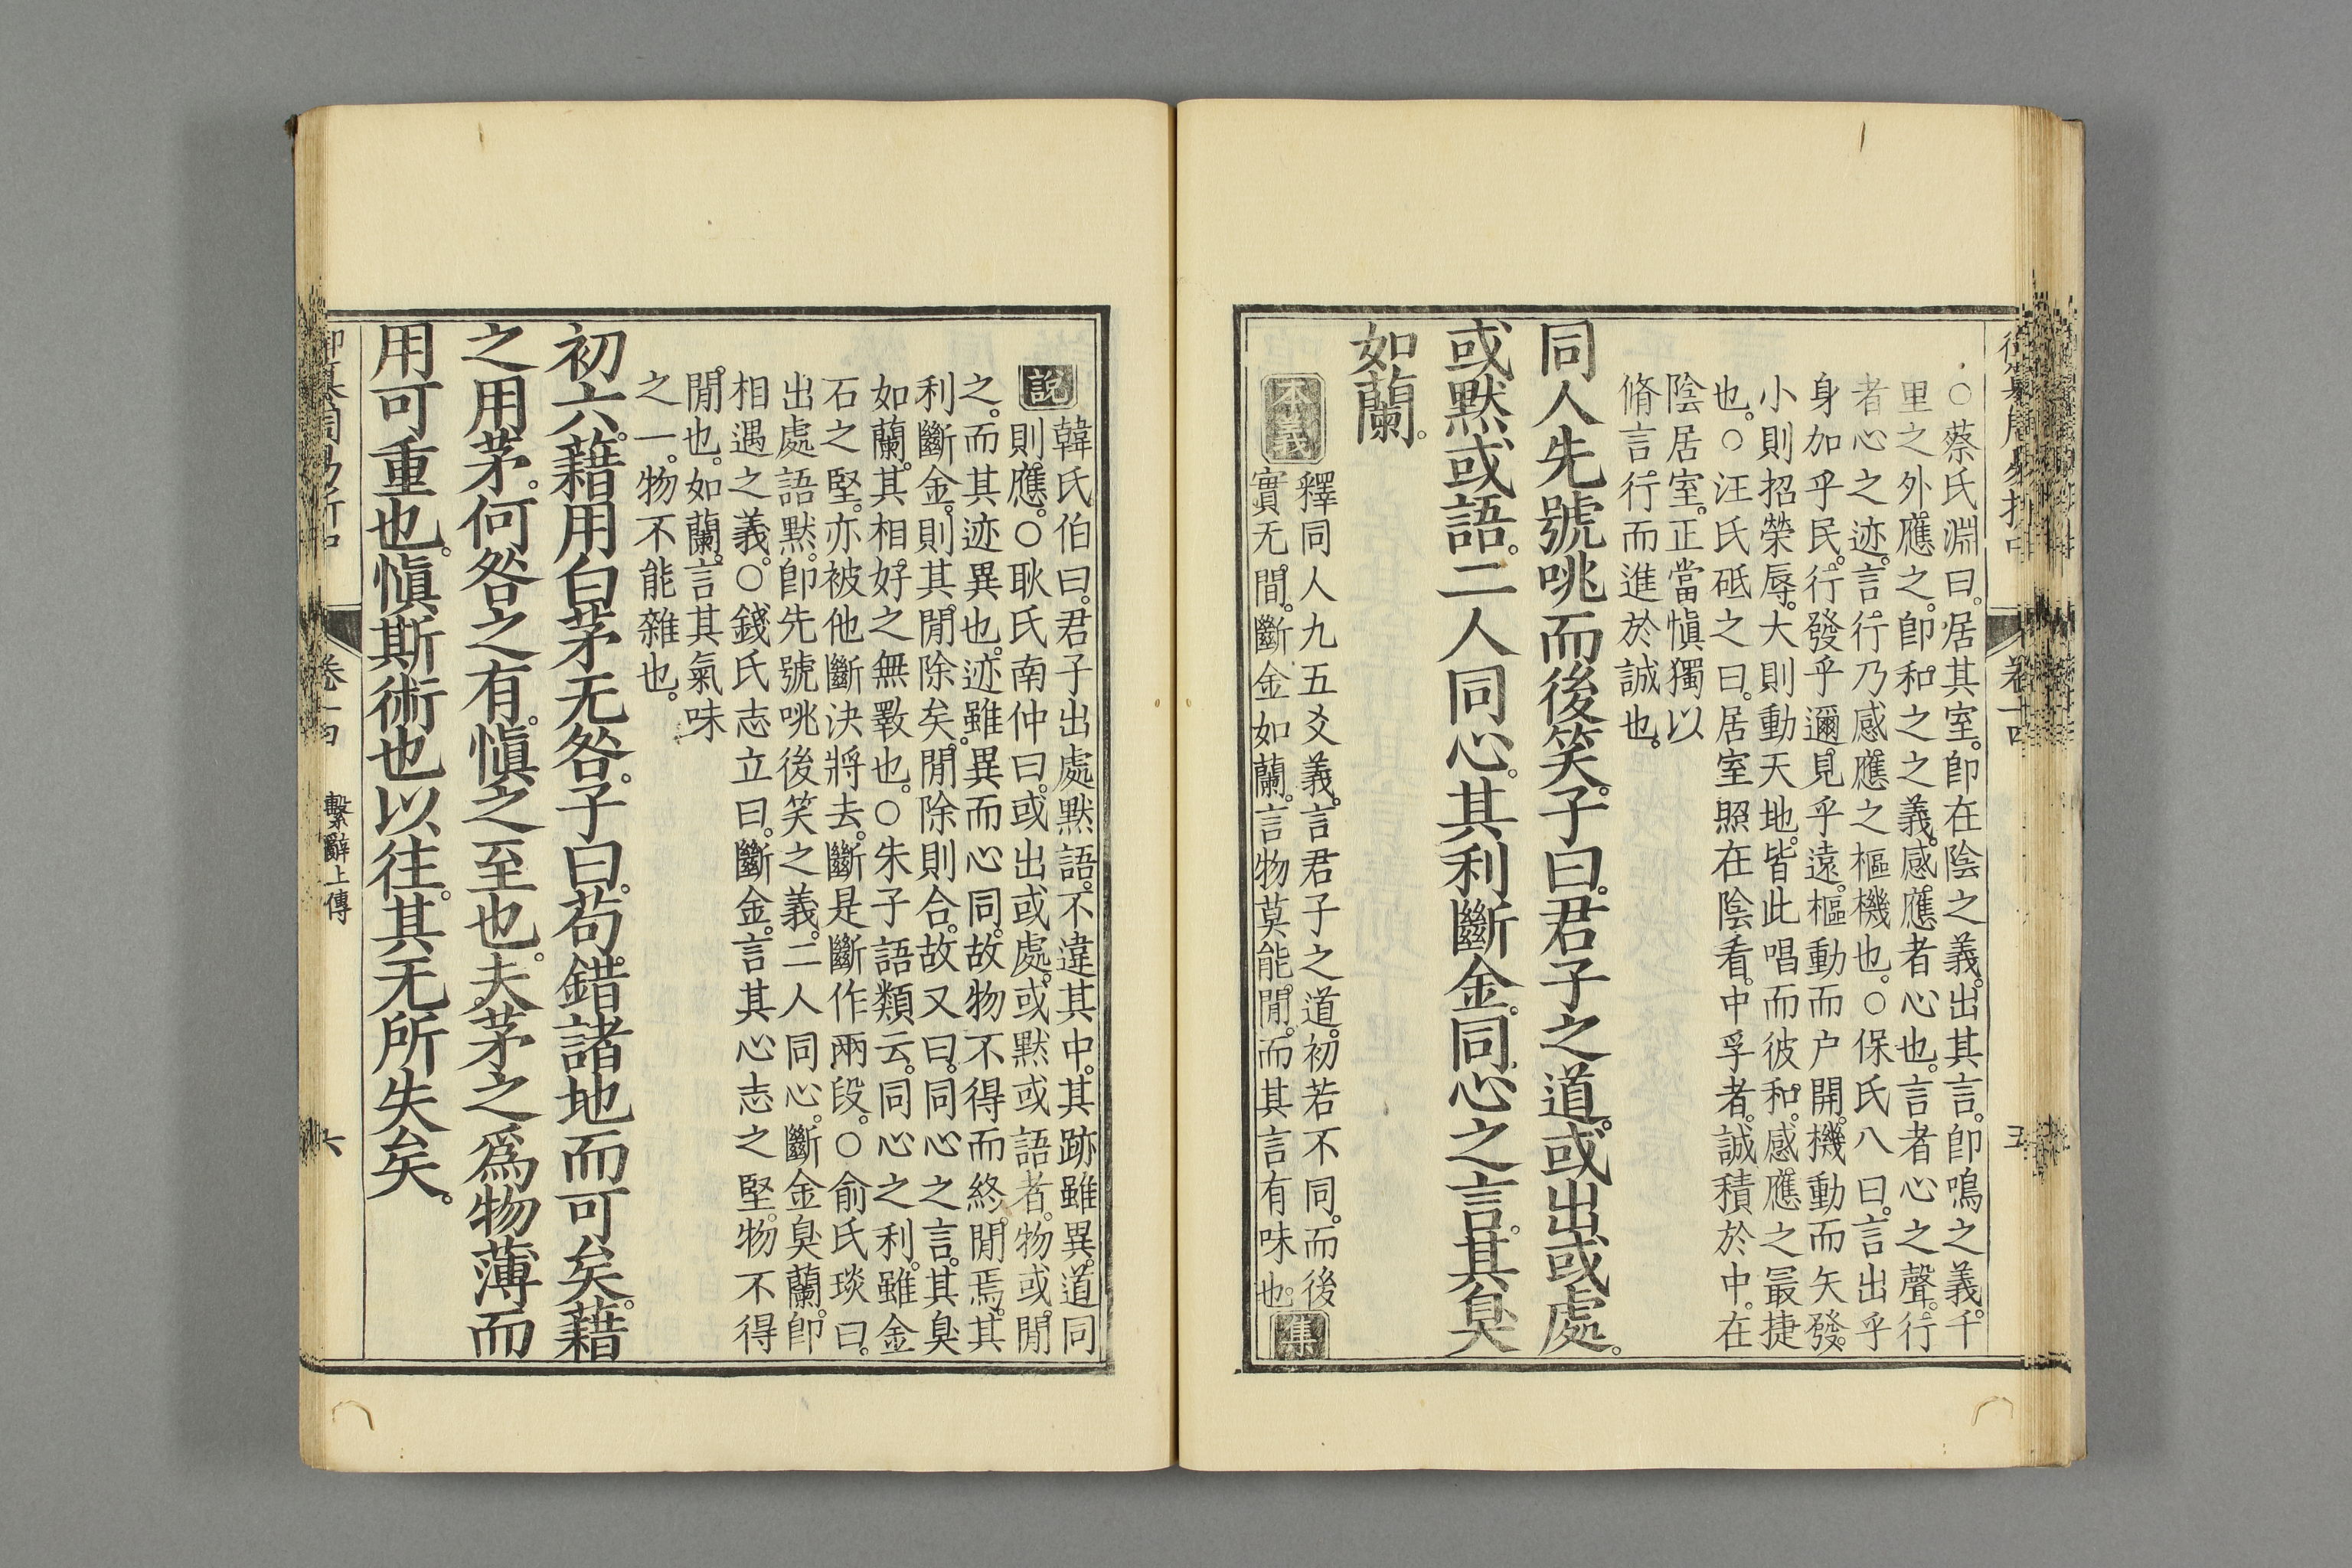 ○蔡氏淵曰。居其室。卽在陰之義。出其言。卽鳴之義。千
里之外應之。卽和之之義。感應者心也。言者心之聲。行
者心之迹。言行乃感應之樞機也。○保氏八曰。言出乎
身加乎民。行發乎邇。見乎遠。樞動而户開。機動而矢發。
小則招榮辱。大則動天地。皆此唱而彼和。感應之最捷
也。○汪氏砥之曰。居室照在陰看。中孚者。誠積於中。在
陰居室。正當愼獨以
脩言行而進於誠也。
同人先號咷而後笑。子曰。君子之道。或出或處。
或默或語。二人同心。其利斷金。同心之言。其臭
如蘭。
本義
釋同人九五爻義。言君子之道。初若不同。而後
實无間。斷金如蘭。言物莫能閒。而其言有味也。
集
說
韓氏伯曰。君子出處默語。不違其中。其跡雖異。道同
則應。○耿氏南仲曰。或出或處。或默或語者。物或閒
之。而其迹異也。迹雖異而心同。故物不得而終閒焉。其
利斷金。則其閒除矣。閒除則合。故又曰。同心之言。其臭
如蘭。其相好之無斁也。○朱子語類云。同心之利。雖金
石之堅。亦被他斷決將去。斷是斷作兩段。○俞氏琰曰。
出處語默。卽先號咷後笑之義。二人同心。斷金臭蘭。卽
相遇之義。○錢氏志立曰。斷金。言其心志之堅。物不得
閒也。如蘭。言其氣味
之一。物不能雜也。
初六。藉用白茅无咎。子曰。苟錯諸地而可矣。藉
之用茅。何咎之有。愼之至也。夫茅之爲物薄而
用可重也。愼斯術也以往。其无所失矣。
卷十四
繫辭上傳
六